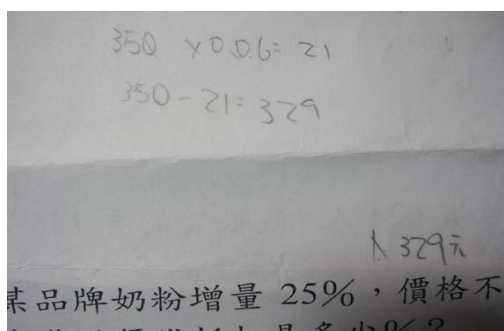 350 ×0.06=21
350-21=329
A 329元
某品牌奶粉增量 25%，價格不